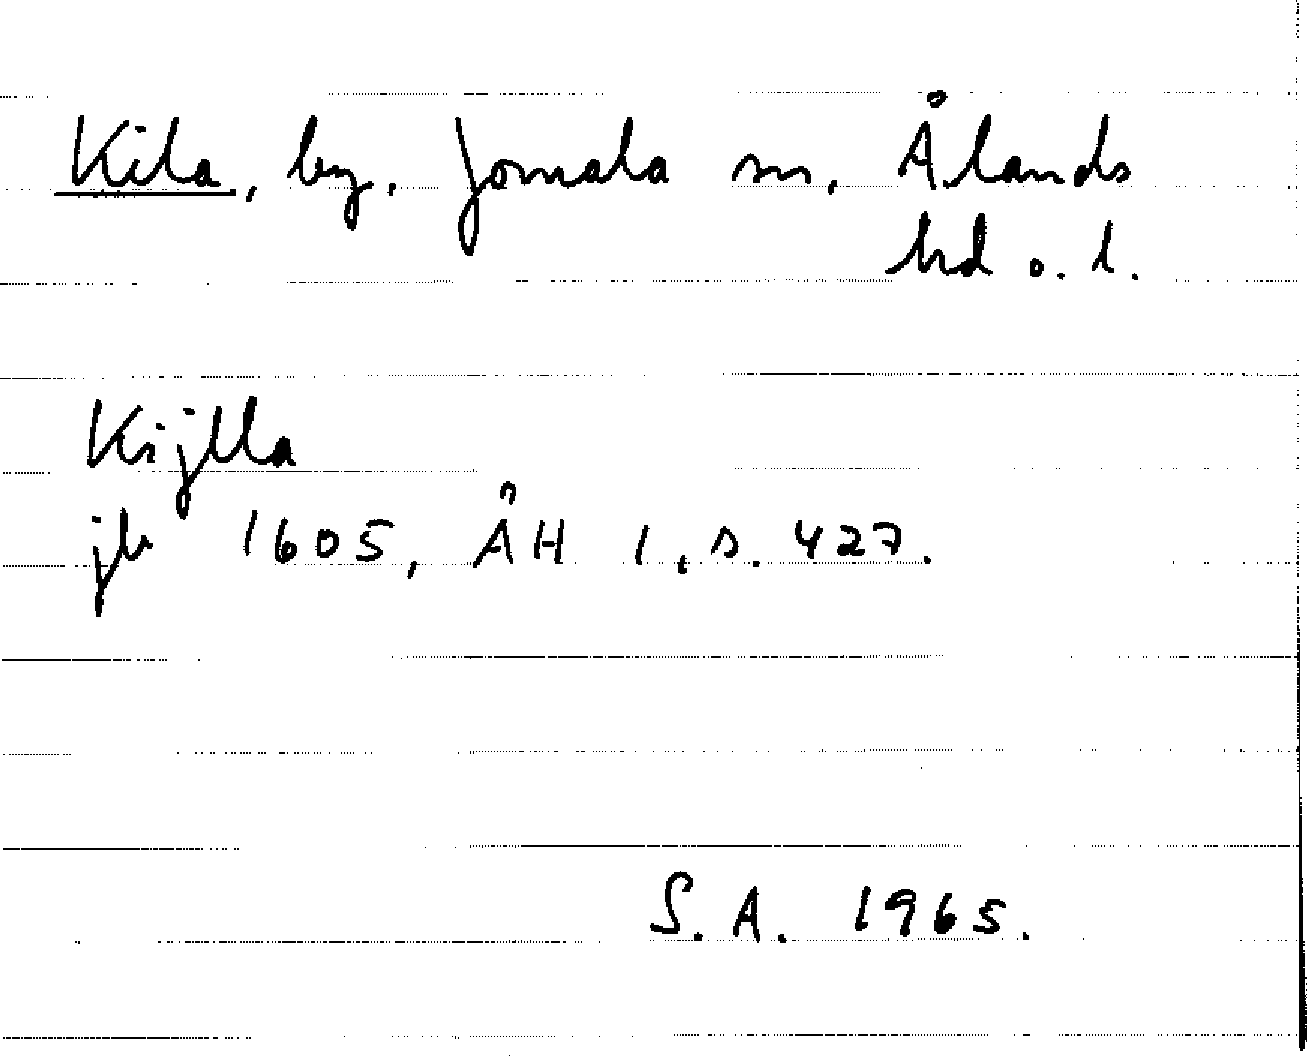 Kila, by. Jomala sn, Ålands
hd o. l.
Kijlla
jb 1605, ÅH 1, s. 427.
S.A. 1965.